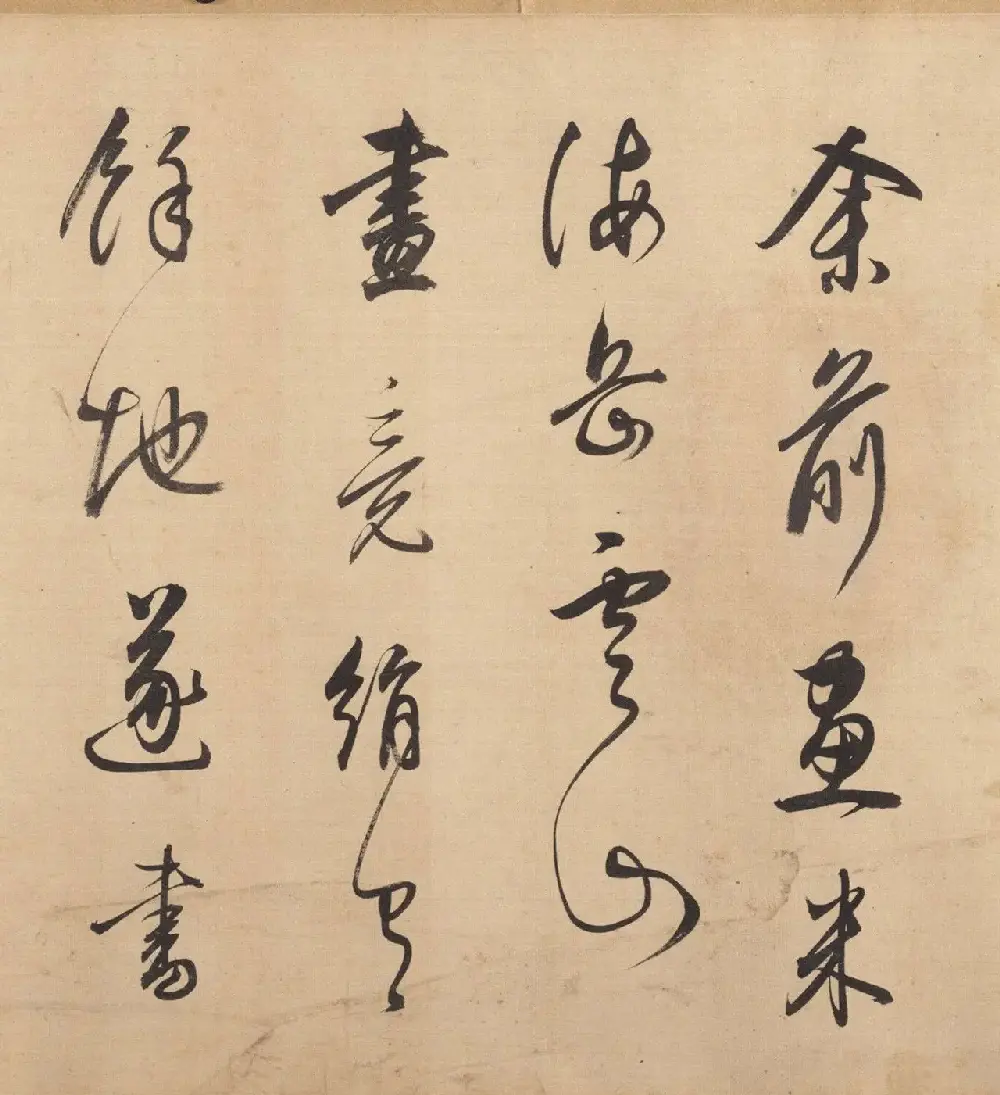 余前畫米
海岳雲山
畫竟絹有
餘地遂書